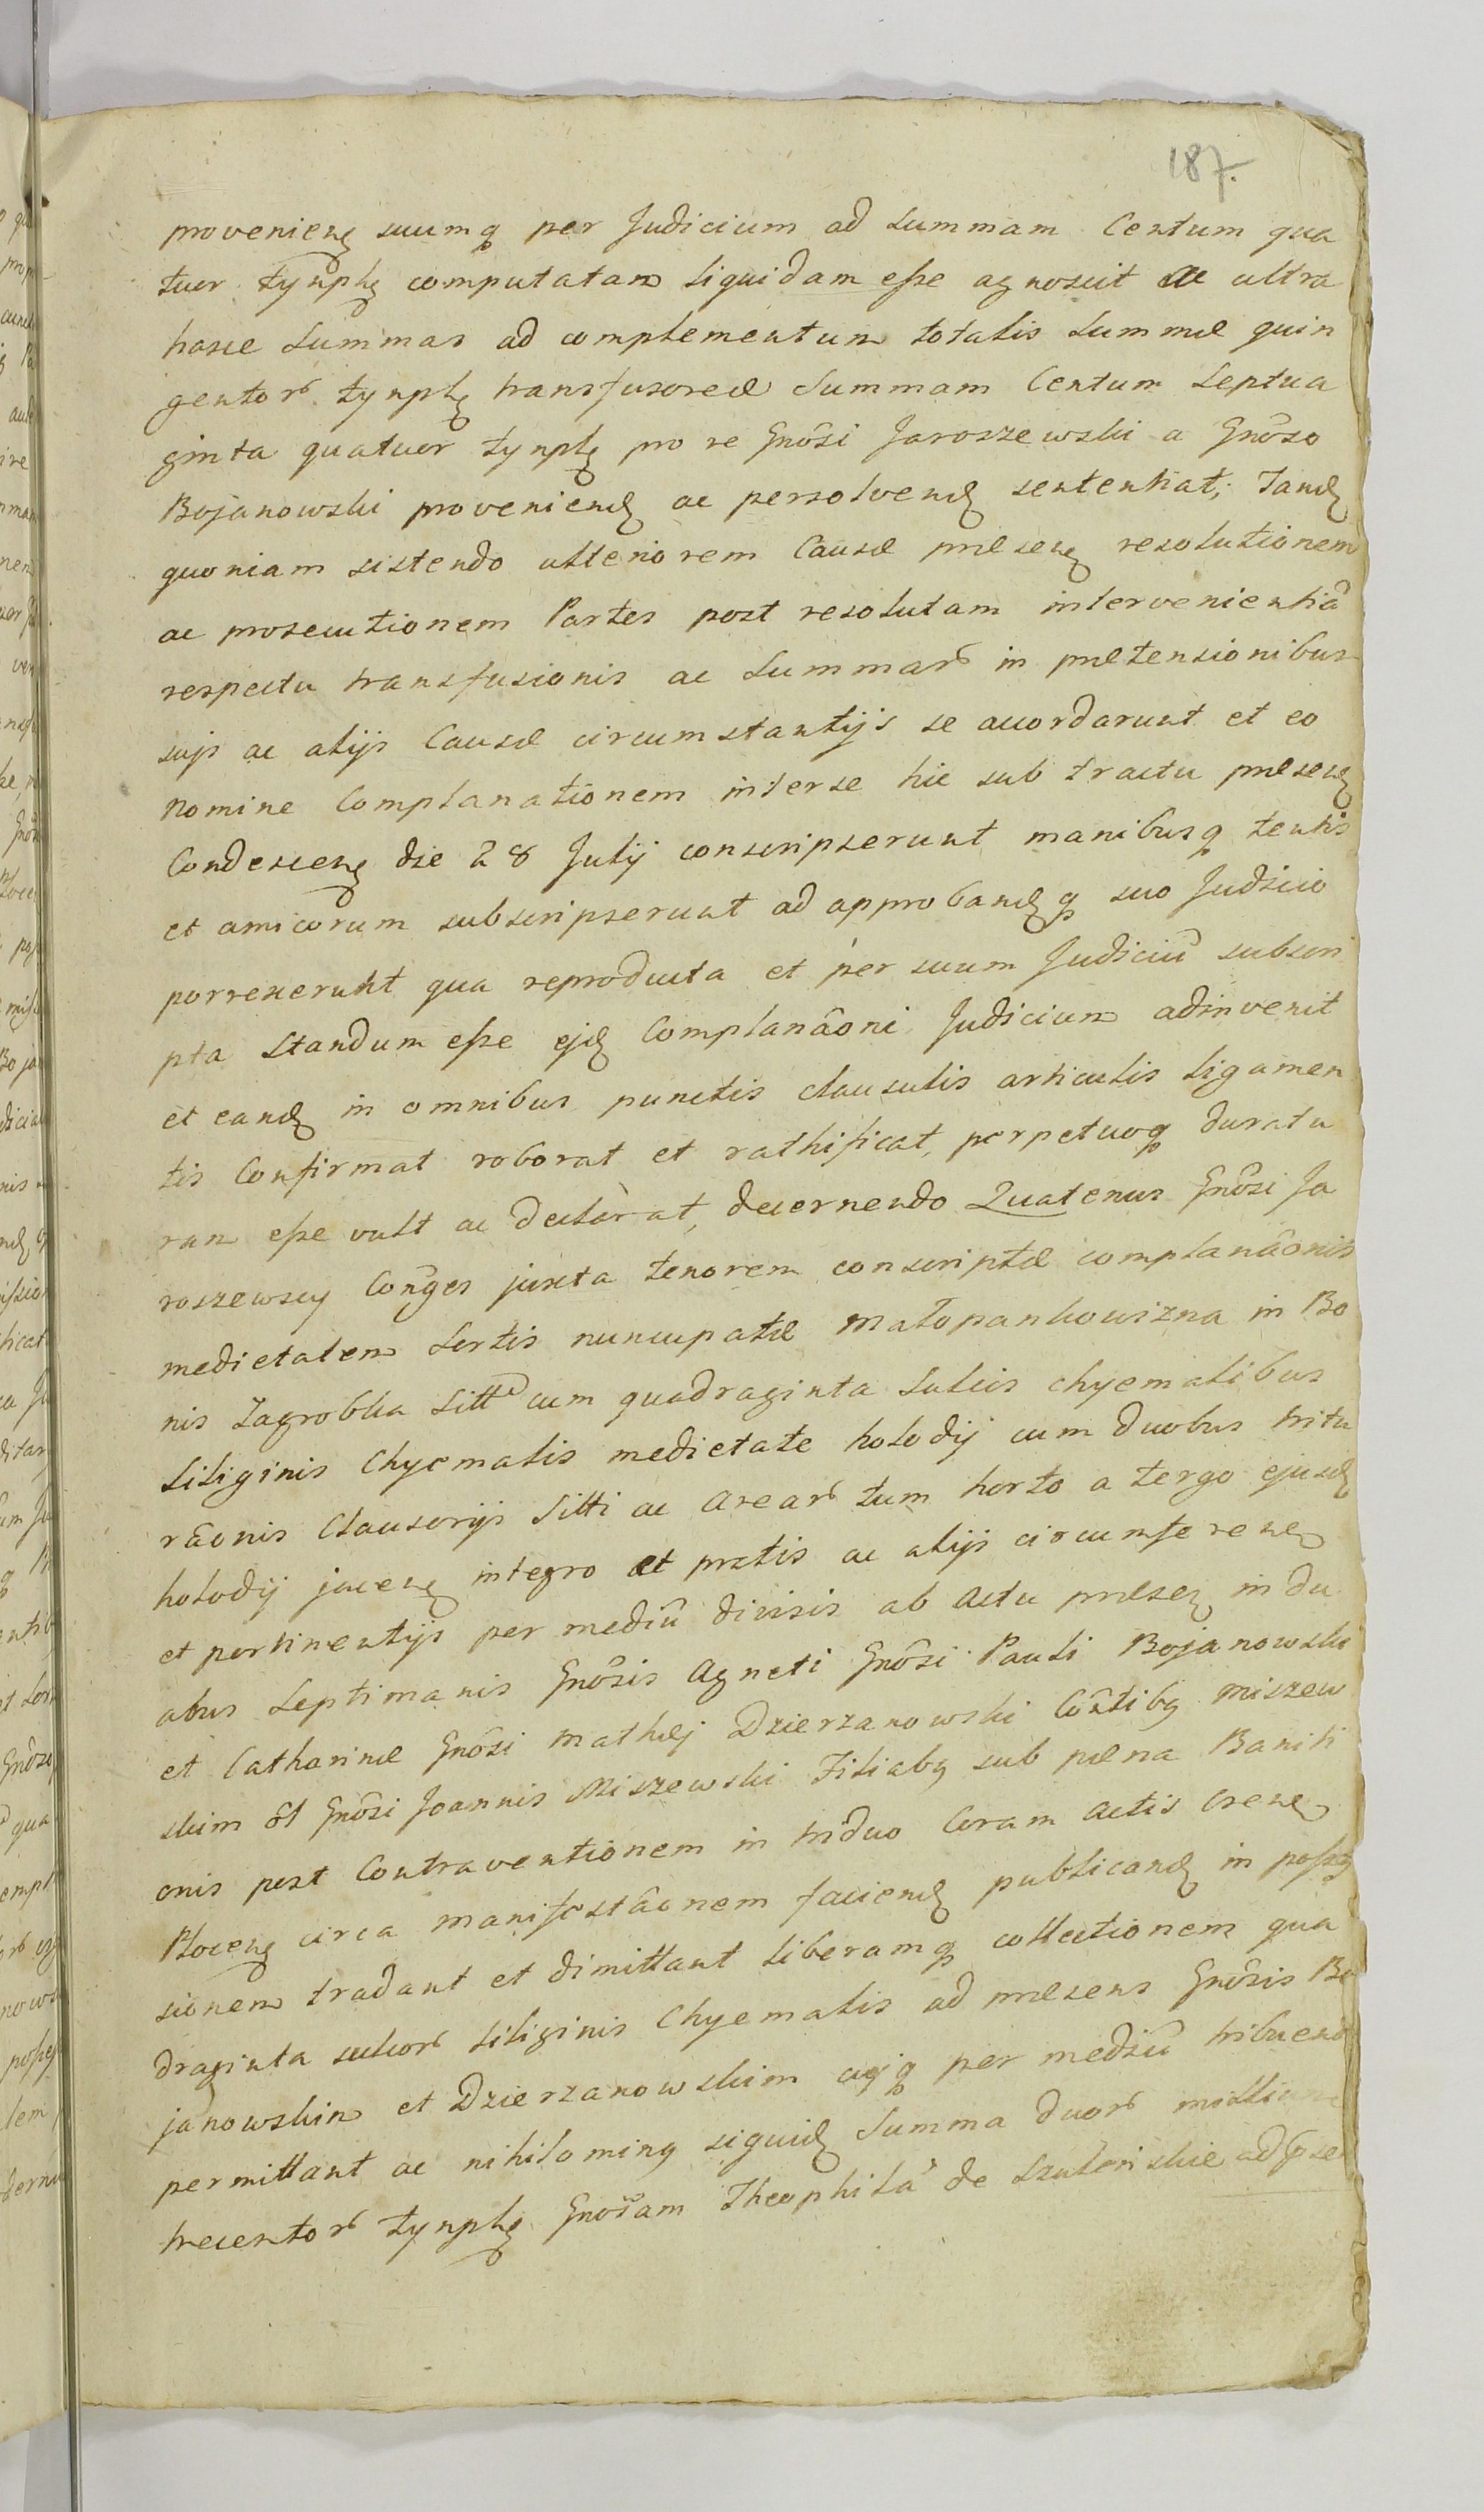 187.
provenien suumq per Judicium ad Summam Centum qua
tuor tynph computatam liquidam esse agnoscit ac ultra
hasce Summas ad complementum totalis Summæ quin
gentor tynph transfusoreæ Summam Centum Septua
ginta quatuor tynph pro re Gnôsi Jaroszewski a Gnôso
Bojanowski proveniend ac persolvend sententiat, Tand
quoniam sistendo ulteriorem Causæ præsen resolutionem
ac prosecutionem Partes post resolutam intervenientiã
respectu transfusionis ac Summar in prætensionibus
suis ac alijs Causæ circumstantijs se accordarunt et eo
Nomine Complanationem inter se hic sub tractu præsen
Condescen die 28 Julij conscripserunt manibusq tentis
et amicorum subscripserunt ad approbandq suo Judicio
porrexerunt qua reproducta et per suum Judiciũ subscri
pta Standum esse ejd Complanâoni Judicium adinvenit
et eand in omnibus punctis clausulis articulis ligamen
tis Confirmat roborat et rathificat, perpetuoq duratu
ram esse vult ac declarat, decernendo Quatenus Gnôsi Ja
roszewscy Conges juxta tenorem conscriptæ complanâonis
medietatem Sortis nuncupatæ Małopankowizna in Bo
nis Zagrobka Sitt cum quadraginta Sulcis chyemalibus
Siliginis Chyemalis medietate holodij cum duobus tritu
râonis Clausorijs Sitti ac Arear tum horto a tergo ejusd
holodij jacen integro et pratis ac alijs circumferen
et pertinentijs per mediũ divisis ab Actu præsen in du
abus Septimanis Gnôsis Agneti Gnôsi Pauli Bojanowski
et Catharinæ Gnôsi Mathæj Dzierzanowski Côntibq Miszew
skim ôl Gnôsi Joannis Miszewski Filiabq sub pæna Baniti
onis post Contraventionem in triduo Coram Actis Cren
Plocen circa manifestâonem faciend publicand in posses
sionem tradant et dimittant liberamq collectionem qua
draginta sulcor Siliginis Chyemalis ad præsens Gnôsis Bo
janowskim et Dzierzanowskim cuq per mediũ tribuend
permittant ac nihilominq siquid Summa duor millium
trecentor tynph Gnôsam Theophilã de